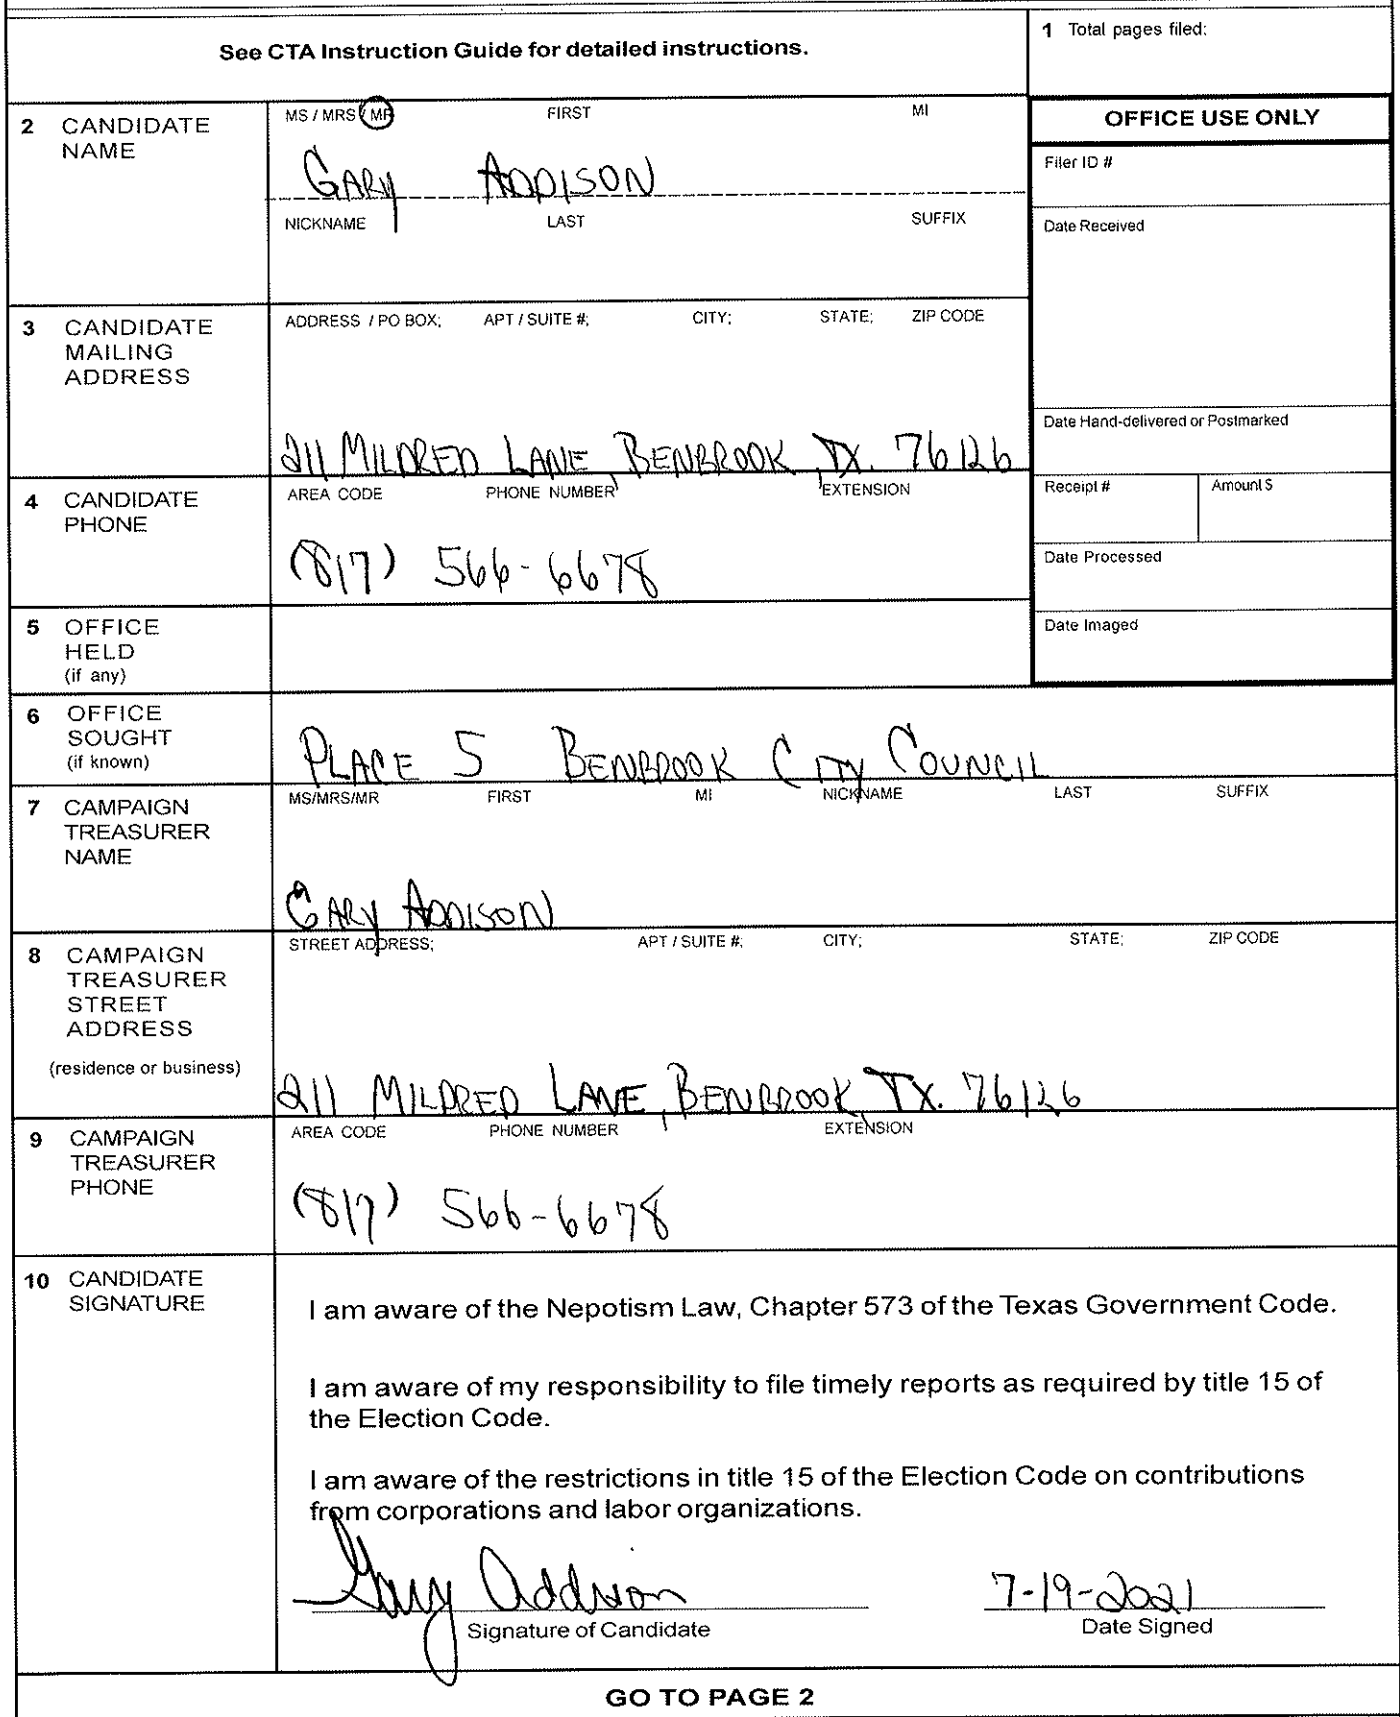 See CTA Instruction Guide for detailed instructions.
1 Total pages filed:
2 CANDIDATE NAME
MS / MRS / MR FIRST MI
GARY ADDISON
NICKNAME LAST SUFFIX
OFFICE USE ONLY
Filer ID #
Date Received
3 CANDIDATE MAILING ADDRESS
ADDRESS / PO BOX; APT / SUITE #; CITY; STATE; ZIP CODE
211 MILDRED LANE, BENBROOK, TX. 76126
Date Hand-delivered or Postmarked
Receipt # Amount $
Date Processed
Date Imaged
4 CANDIDATE PHONE
AREA CODE PHONE NUMBER EXTENSION
(817) 566-6678
5 OFFICE HELD (if any)
6 OFFICE SOUGHT (if known)
PLACE 5 BENBROOK CITY COUNCIL
7 CAMPAIGN TREASURER NAME
MS/MRS/MR FIRST MI NICKNAME LAST SUFFIX
GARY ADDISON
8 CAMPAIGN TREASURER STREET ADDRESS (residence or business)
STREET ADDRESS; APT / SUITE #; CITY; STATE; ZIP CODE
211 MILDRED LANE, BENBROOK, TX. 76126
9 CAMPAIGN TREASURER PHONE
AREA CODE PHONE NUMBER EXTENSION
(817) 566-6678
10 CANDIDATE SIGNATURE
I am aware of the Nepotism Law, Chapter 573 of the Texas Government Code.
I am aware of my responsibility to file timely reports as required by title 15 of
the Election Code.
I am aware of the restrictions in title 15 of the Election Code on contributions
from corporations and labor organizations.
Gary Addison 7-19-2021
Signature of Candidate Date Signed
GO TO PAGE 2